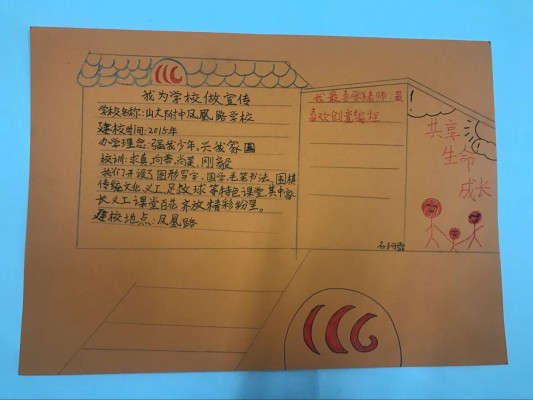 我为学校做宣传
学校名称:山大附中凤凰路学校
建校时间:2015年
办学理念:强我少年,兴我家国
校训:求真,向善,尚美,刚毅
我们开设了图形写字、国学,毛笔书法、围棋
传统文化,义工,足球等特色课堂,其中家
长义工课堂百花齐放精彩纷呈。
建校地点:凤凰路
我最喜欢
喜欢创意编程
共享
生命
成长